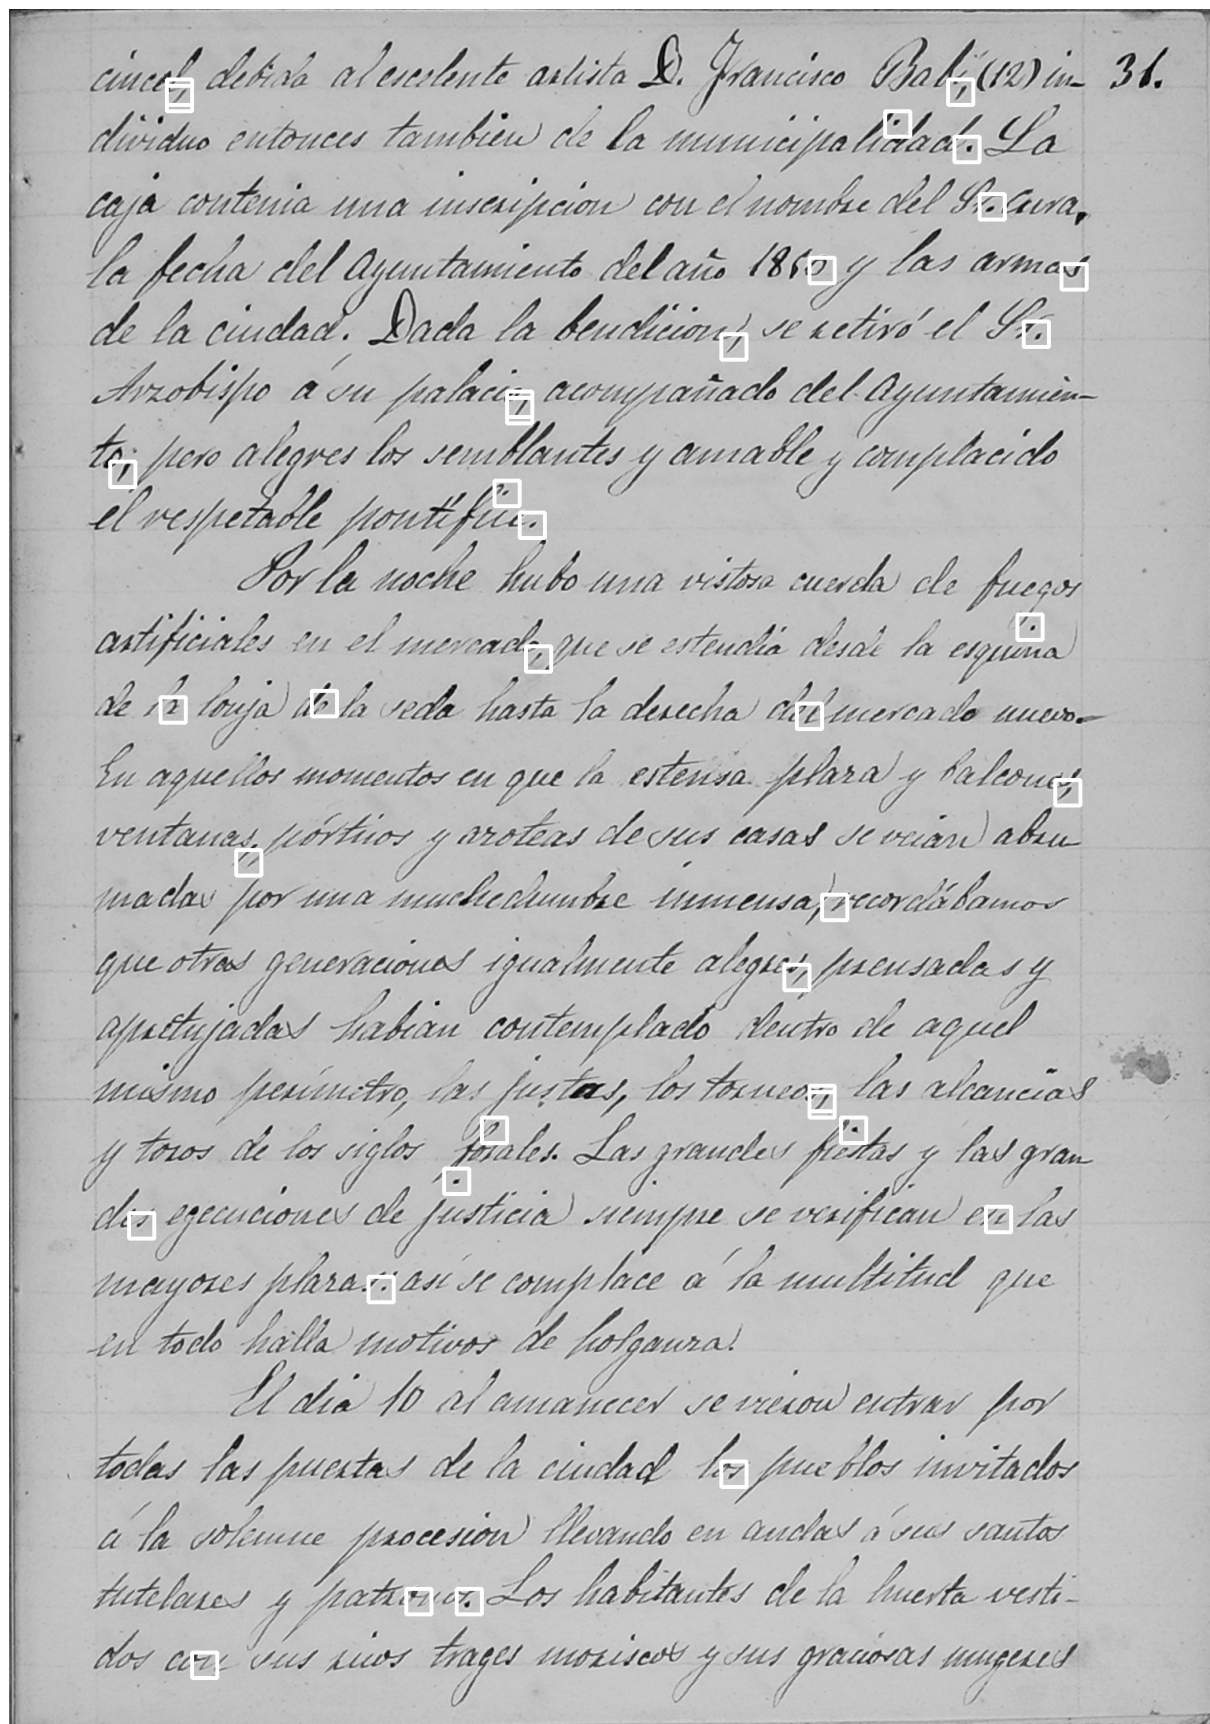 cincel, debida al escelente artista D. Francisco Babí, (12) in- 31.
dividuo entonces tambien de la municipalidad. La
caja contenia una inscripcion con el nombre del Sr. Cura,
la fecha del Ayuntamiento del año 1850 y las armas
de la ciudad. Dada la bendicion, se retiró el Sr.
Arzobispo á su palacio, acompañado del Ayuntamien-
to, pero alegres los semblantes y amable y complacido
el respetable pontífice.
Por la noche hubo una vistosa cuerda de fuegos
artificiales en el mercado, que se estendia desde la esquina
de la lonja de la seda hasta la derecha del mercado nuevo.
En aquellos momentos en que la estensa plaza y balcones,
ventanas, pórticos y azoteas de sus casas se veian abru
madas por una muchedumbre inmensa, recordábamos
que otras generaciones igualmente alegres, prensadas y
apretujadas habian contemplado dentro de aquel
mismo perímetro, las justas, los torneos, las alcancías
y toros de los siglos forales. Las grandes fiestas y las gran
des egecuciones de justicia siempre se verifican en las
mayores plazas: así se complace á la multitud que
en todo halla motivos de holganza.
El dia 10 al amanecer se vieron entrar por
todas las puertas de la ciudad los pueblos invitados
á la solemne procesion llevando en andas á sus santos
tutelares y patronos. Los habitantes de la huerta vesti-
dos con sus ricos trages moriscos y sus graciosas mugeres